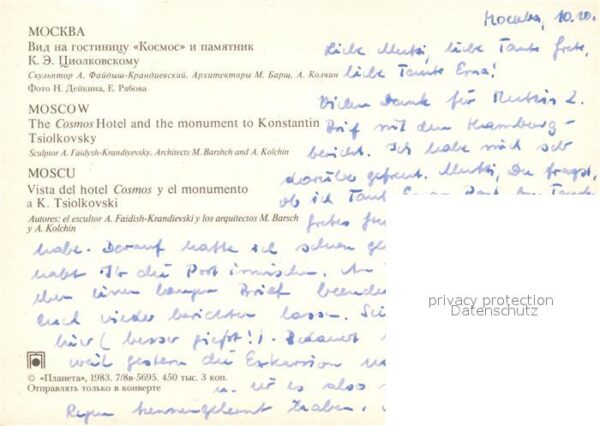 МОСКВА
Вид на гостиницу «Космос» и памятник
К. Э. Циолковскому
Скульптор А. Файдыш-Крандиевский. Архитекторы М. Барщ, А. Колчин
Фото Н. Дейкина, Е. Рябова
MOSCOW
The Cosmos Hotel and the monument to Konstantin
Tsiolkovsky
Sculptor A. Faidysh-Krandiyevsky. Architects M. Barshch and A. Kolchin
MOSCU
Vista del hotel Cosmos y el monumento
a K. Tsiolkovski
Autores: el escultor A. Faidish-Krandievski y los arquitectos M. Barsch
y A. Kolchin
© «Планета», 1983. 7/8в-5695. 450 тыс. 3 коп.
Отправлять только в конверте
Moskva, 10.10.
Liebe Mutti, liebe Tante Grete,
liebe Tante Erna!
Vielen Dank für Muttis 2.
Brief mit dem Hamburg-
bericht. Ich habe mich sehr
darüber gefreut. Mutti, Du fragst,
ob ich Tante
habe. Darauf hatte ich schon
habt Ihr die Post inzwischen. An
eben einen langen Brief
Euch wieder berichten lassen.
hier (besser gießt!).
weil gestern die Exkursion
u. wir es also
Regen kennengelernt haben.
privacy protection
Datenschutz